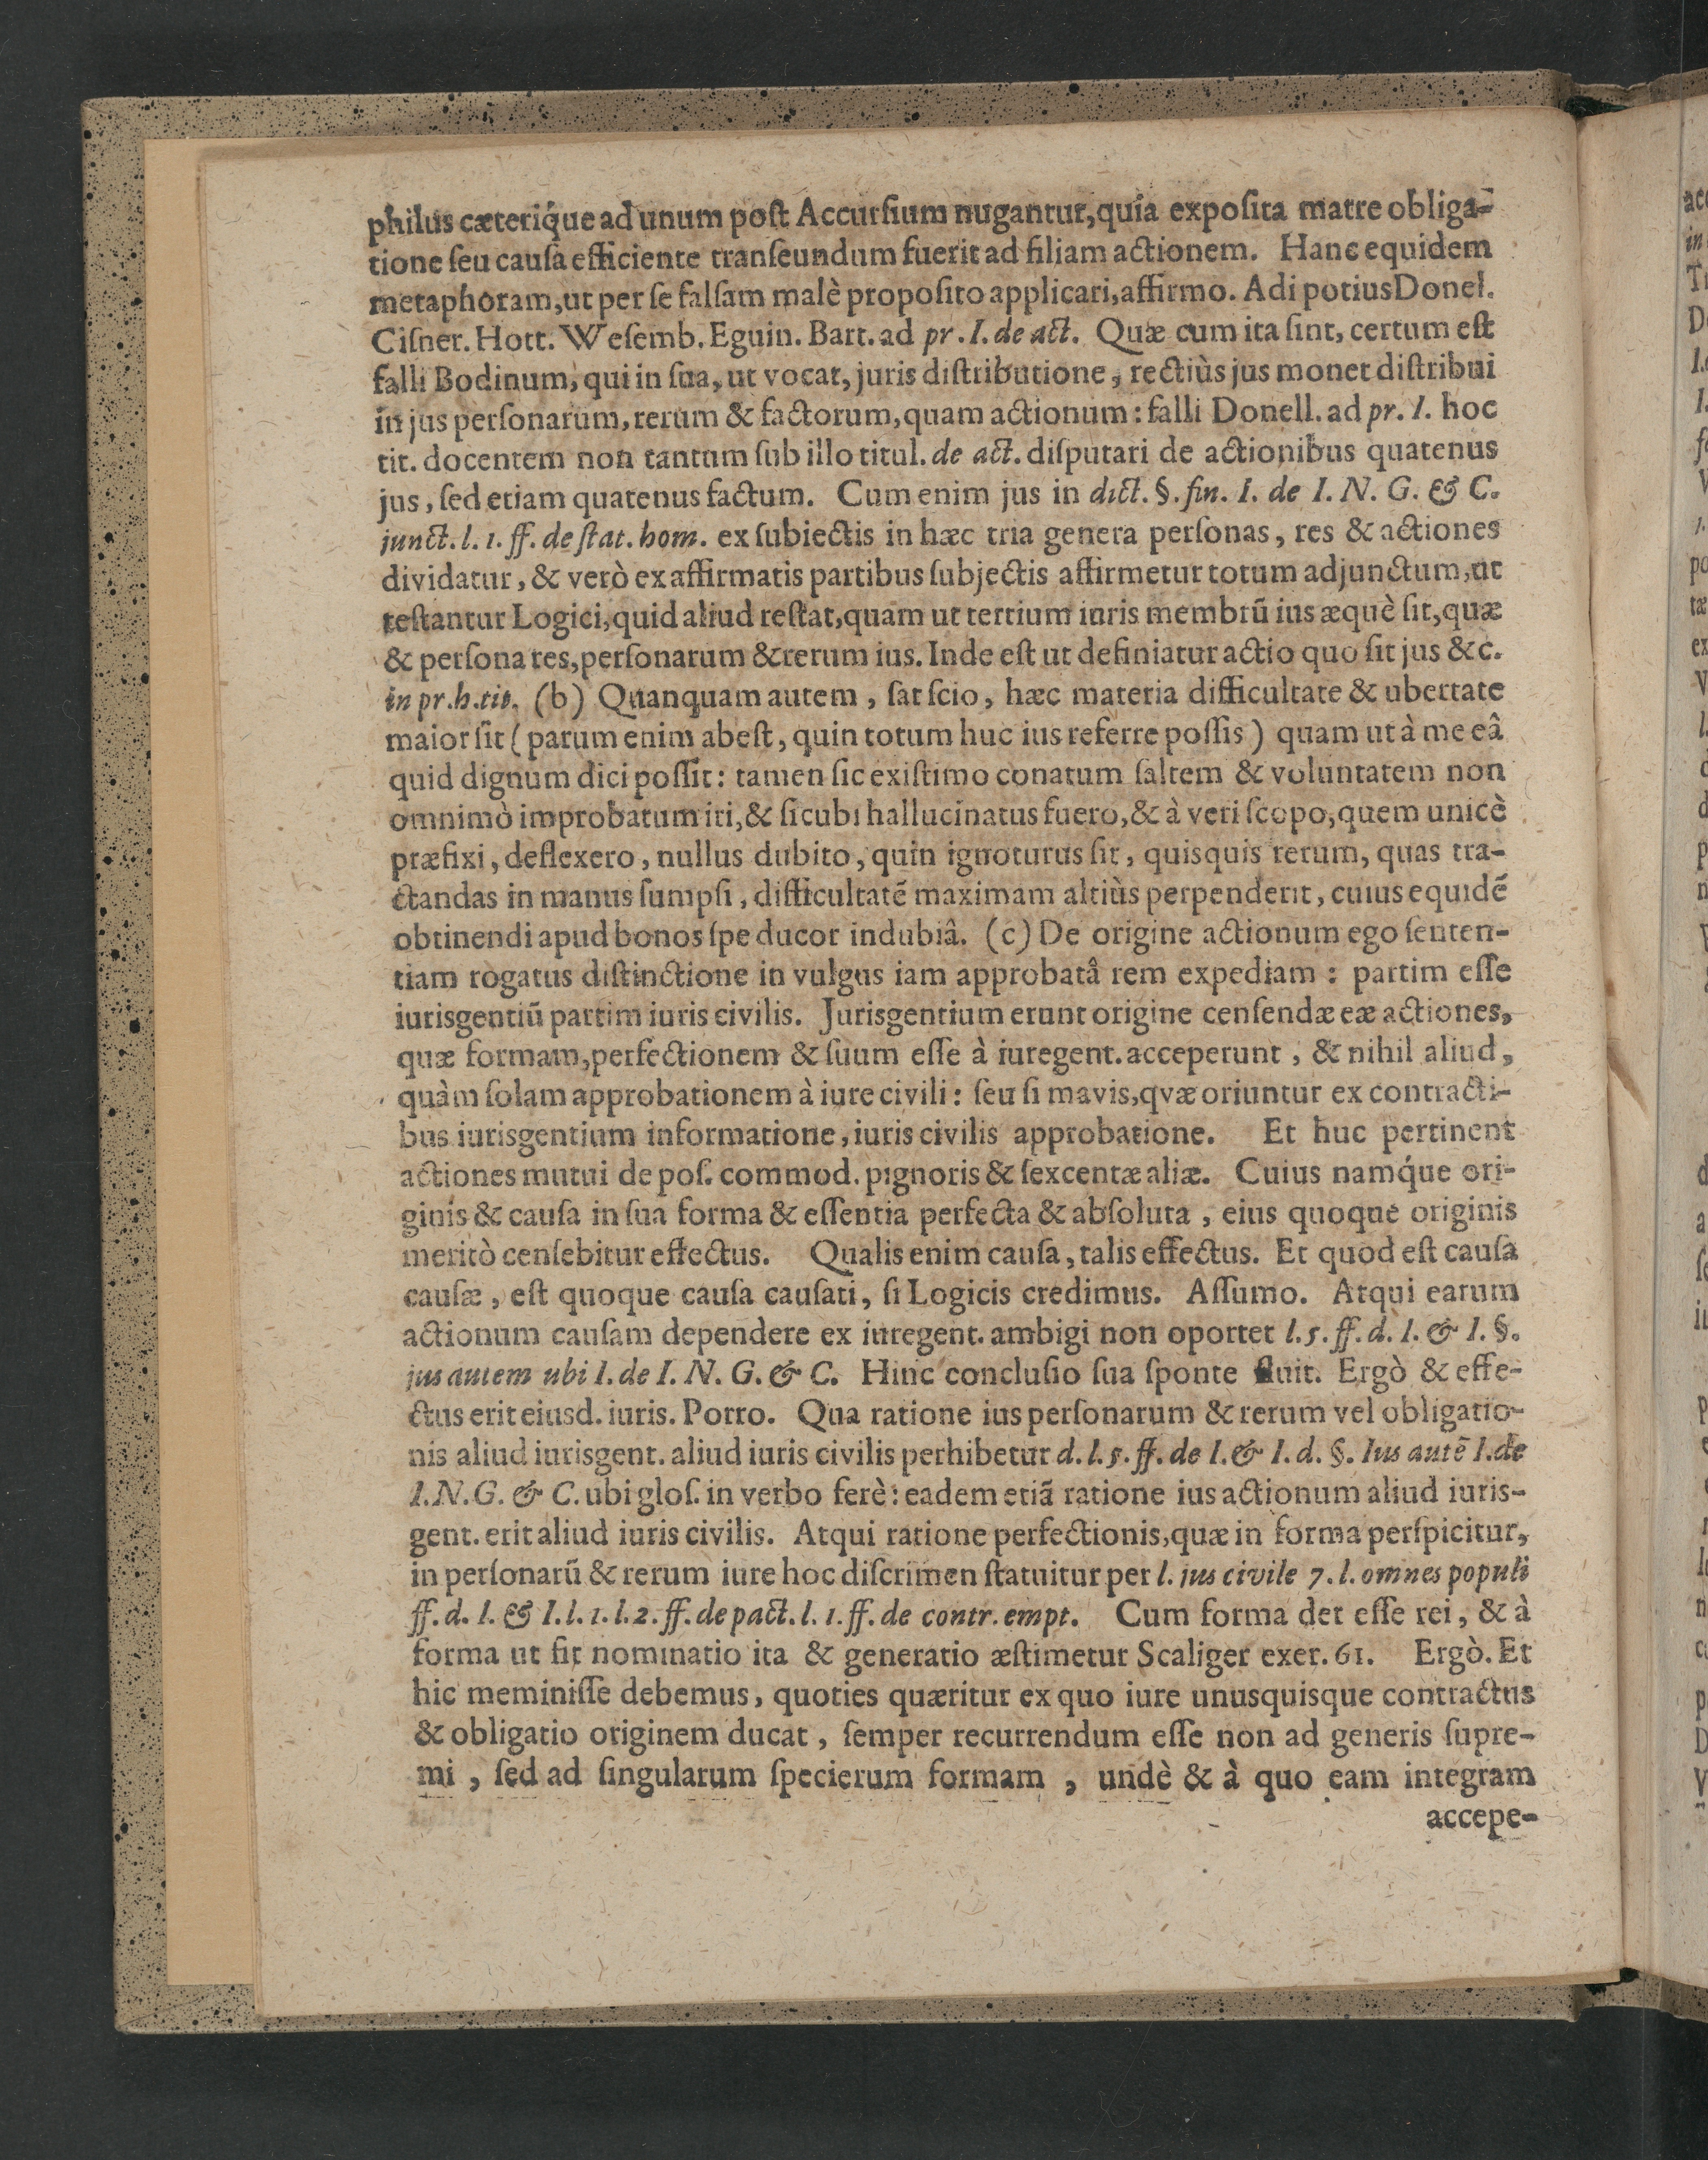 philus cæteriq́ue ad unum poſt Accurſium nugantur, quia expoſita matre obliga-
tione ſeu cauſa efficiente tranſeundum fuerit ad filiam actionem. Hanc equidem
metaphoram, ut per ſe falſam malè propoſito applicari, affirmo. Adi potius Donel.
Ciſner. Hott. Weſemb. Eguin. Bart. ad pr. I. de act. Quæ cum ita ſint, certum eſt
falli Bodinum, qui in ſua, ut vocat, juris diſtributione, rectiùs jus monet diſtribui
in jus perſonarum, rerum & factorum, quam actionum: falli Donell. ad pr. I. hoc
tit. docentem non tantum ſub illo titul. de act. diſputari de actionibus quatenus
jus, ſed etiam quatenus factum. Cum enim jus in dict. §. fin. I. de I. N. G. & C.
junct. l. 1. ff. de ſtat. hom. ex ſubiectis in hæc tria genera perſonas, res & actiones
dividatur, & verò ex affirmatis partibus ſubjectis affirmetur totum adjunctum, ut
teſtantur Logici, quid aliud reſtat, quam ut tertium iuris membrũ ius æquè ſit, quæ
& perſona res, perſonarum & rerum ius. Inde eſt ut definiatur actio quo ſit jus &c.
in pr. h. tit. (b) Quanquam autem, ſat ſcio, hæc materia difficultate & ubertate
maior ſit (parum enim abeſt, quin totum huc ius referre poſſis) quam ut à me eâ
quid dignum dici poſſit: tamen ſic exiſtimo conatum ſaltem & voluntatem non
omnimò improbatum iri, & ſicubi hallucinatus fuero, & à veri ſcopo, quem unicè
præfixi, deflexero, nullus dubito, quin ignoturus ſit, quisquis rerum, quas tra-
ctandas in manus ſumpſi, difficultatẽ maximam altiùs perpenderit, cuius equidẽ
obtinendi apud bonos ſpe ducor indubiâ. (c) De origine actionum ego ſenten-
tiam rogatus diſtinctione in vulgus iam approbatâ rem expediam: partim eſſe
iurisgentiũ partim iuris civilis. Jurisgentium erunt origine cenſendæ eæ actiones,
quæ formam, perfectionem & ſuum eſſe à iuregent. acceperunt, & nihil aliud,
quàm ſolam approbationem à iure civili: ſeu ſi mavis, qvæ oriuntur ex contracti-
bus iurisgentium informatione, iuris civilis approbatione. Et huc pertinent
actiones mutui depoſ. commod. pignoris & ſexcentæ aliæ. Cuius namq́ue ori-
ginis & cauſa in ſua forma & eſſentia perfecta & abſoluta, eius quoque originis
meritò cenſebitur effectus. Qualis enim cauſa, talis effectus. Et quod eſt cauſa
cauſæ, eſt quoque cauſa cauſati, ſi Logicis credimus. Aſſumo. Atqui earum
actionum cauſam dependere ex iuregent. ambigi non oportet l. 5. ff. d. I. & I. §.
jus autem ubi I. de I. N. G. & C. Hinc concluſio ſua ſponte fluit. Ergò & effe-
ctus erit eiusd. iuris. Porro. Qua ratione ius perſonarum & rerum vel obligatio-
nis aliud iurisgent. aliud iuris civilis perhibetur d. l. 5. ff. de I. & I. d. §. Ius autẽ I. de
I. N. G. & C. ubi gloſ. in verbo ferè: eadem etiã ratione ius actionum aliud iuris-
gent. erit aliud iuris civilis. Atqui ratione perfectionis, quæ in forma perſpicitur,
in perſonarũ & rerum iure hoc diſcrimen ſtatuitur per l. jus civile 7. l. omnes populi
ff. d. I. & I. l. 1. l. 2. ff. de pact. l. 1. ff. de contr. empt. Cum forma det eſſe rei, & à
forma ut fit nominatio ita & generatio æſtimetur Scaliger exer. 61. Ergò. Et
hic meminiſſe debemus, quoties quæritur ex quo iure unusquisque contractus
& obligatio originem ducat, ſemper recurrendum eſſe non ad generis ſupre-
mi, ſed ad ſingularum ſpecierum formam, undè & à quo eam integram
accepe-